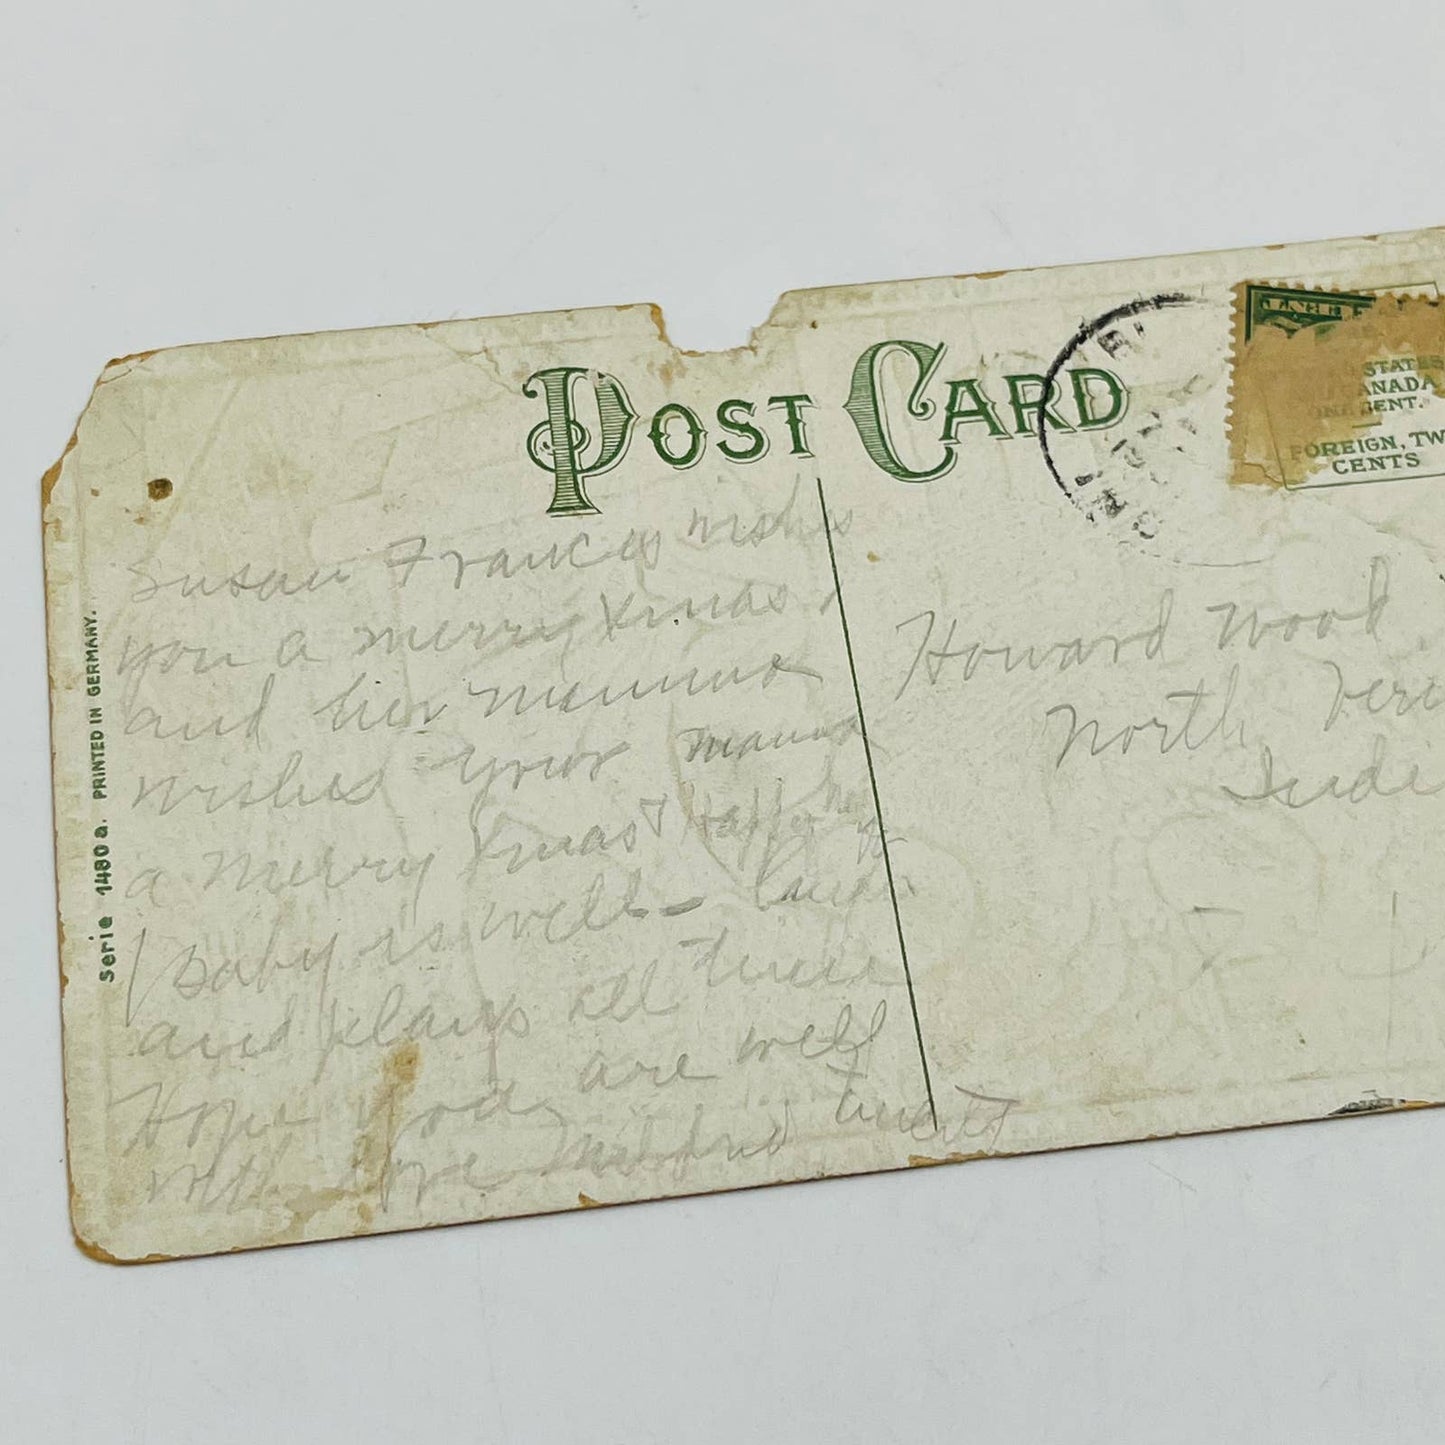 POST CARD
UNITED STATES
CANADA
ONE CENT.
FOREIGN, TW
CENTS
Serie 1480 a. PRINTED IN GERMANY.
Susan Frances wishes
you a merry Xmas,
and her mamma
wishes your mamma
a merry Xmas & Happy
Baby is well - laughs
and plays all time
Hope you are well
with love Mildred
Howard Wood
North Ver
Indi